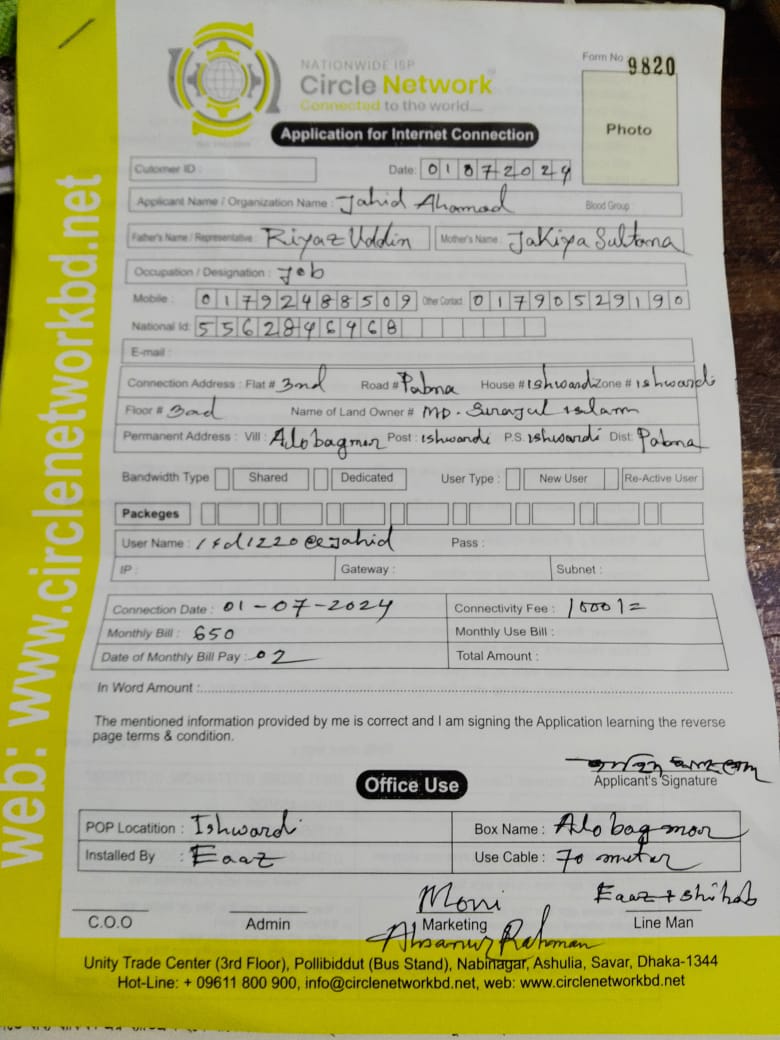 NATIONWIDE ISP
Circle Network
Connected to the world....
Form No 9820
Photo
Application for Internet Connection
Cutomer ID :
Date: 01072024
Applicant Name / Organization Name : Jahid Ahamad Blood Group :
Father's Name / Representative : Riyaz Uddin Mother's Name : Jakiya Sultana
Occupation / Designation : Job
Mobile : 01792488509 Other Contact 01790529190
National Id: 5562846968
E-mail :
Connection Address : Flat # 3nd Road # Pabna House # ishwardi Zone # ishwardi
Floor # 3ad Name of Land Owner # MD. Sirajul islam
Permanent Address : Vill : Alobagmor Post : ishwardi P.S. ishwardi Dist: Pabna
Bandwidth Type Shared Dedicated User Type : New User Re-Active User
Packeges
User Name : Pass :
IP : Gateway : Subnet :
Connection Date : 01-07-2024 Connectivity Fee : 1000/=
Monthly Bill : 650 Monthly Use Bill :
Date of Monthly Bill Pay : 02 Total Amount :
In Word Amount :
The mentioned information provided by me is correct and I am signing the Application learning the reverse
page terms & condition.
Applicant's Signature
Office Use
POP Locatition : Ishwardi Box Name : Alobagmor
Installed By : Eaaz Use Cable : 70 meter
Moni Eaaz + Shihab
C.O.O Admin Marketing Line Man
Ahsanur Rahman
Unity Trade Center (3rd Floor), Pollibiddut (Bus Stand), Nabinagar, Ashulia, Savar, Dhaka-1344
Hot-Line: + 09611 800 900, info@circlenetworkbd.net, web: www.circlenetworkbd.net
web: www.circlenetworkbd.net